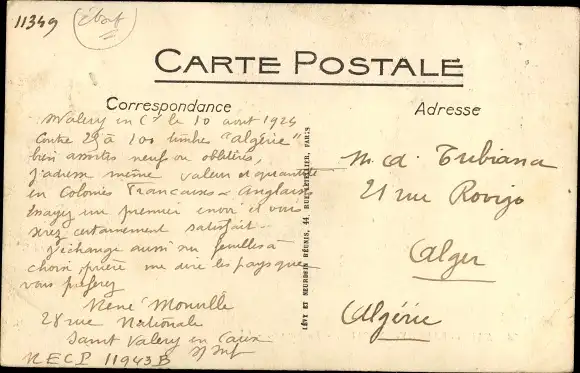 11349
CARTE POSTALE
Correspondance
Adresse
St Valery en Cx le 10 aout 1925
Contre 25 à 100 timbres "algérie"
bien assortis neuf ou oblitérés,
j'adresse même valeur et quantité
en Colonies Francaises & Anglaises
Essayez un premier envoi et vous
serez certainement satisfait
J'échange aussi sur feuilles à
choix, prière me dire les pays que
vous préférez
René Monville
28 rue Nationale
Saint Valery en Caux
S Inf
NECP 11943B
M. A. Tubiana
21 rue Rovigo
Alger
Algérie
LÉVY ET NEURDEIN RÉUNIS, 44, RUE LETELLIER, PARIS